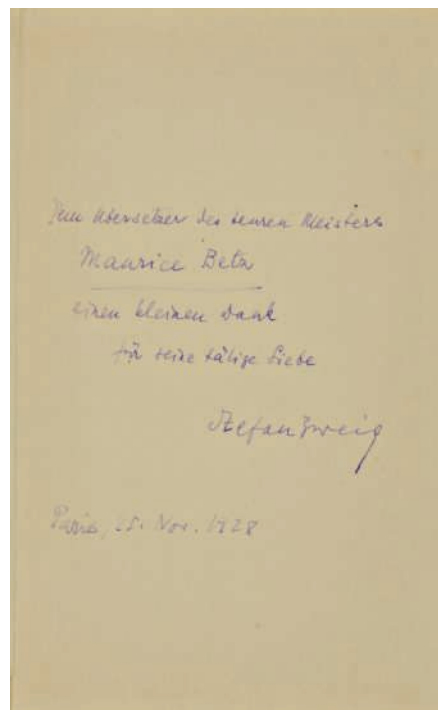 Dem Übersetzer des teuren Meisters
Maurice Betz
einen kleinen Dank
für seine tätige Liebe
Stefan Zweig
Paris, 25. Nov. 1928